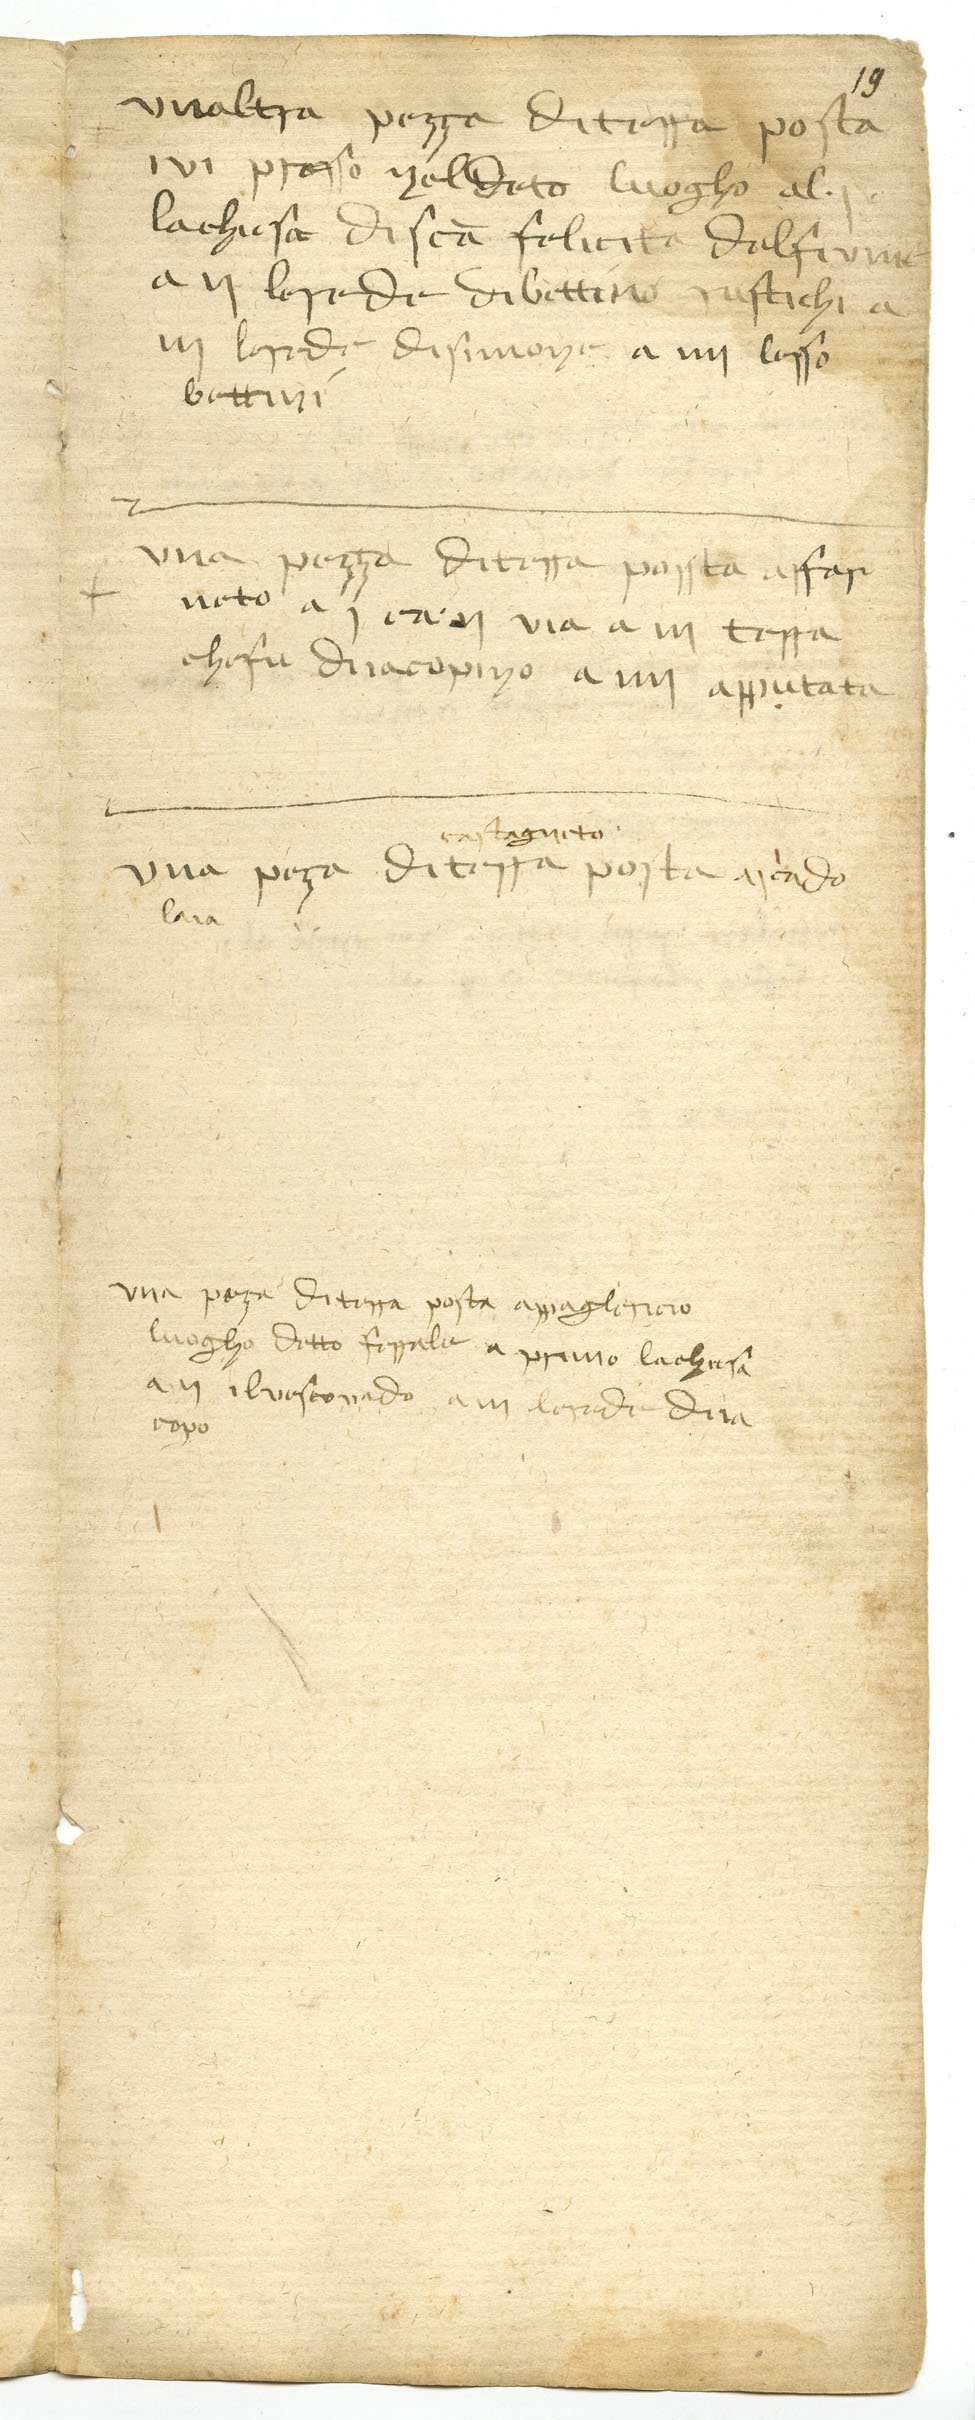 19
vnaltra pezza diterra posta
ivi presso nel deto luogho al .j.
lachiesa di sca felicita dalfiume
a ij lerede dibettino rustichi a
iij lerede disimone a iiij lesso
bettini
vna pezza diterra possta affar
neto a j ea ij via a iij terra
chefu diiacopino a iiij apputata
castagneto
vna peza diterra posta
vna peza diterra posta appaglericcio
luogho detto ferrale a primo lachiesa
a ij ilvescovado a iij lerede diia
copo